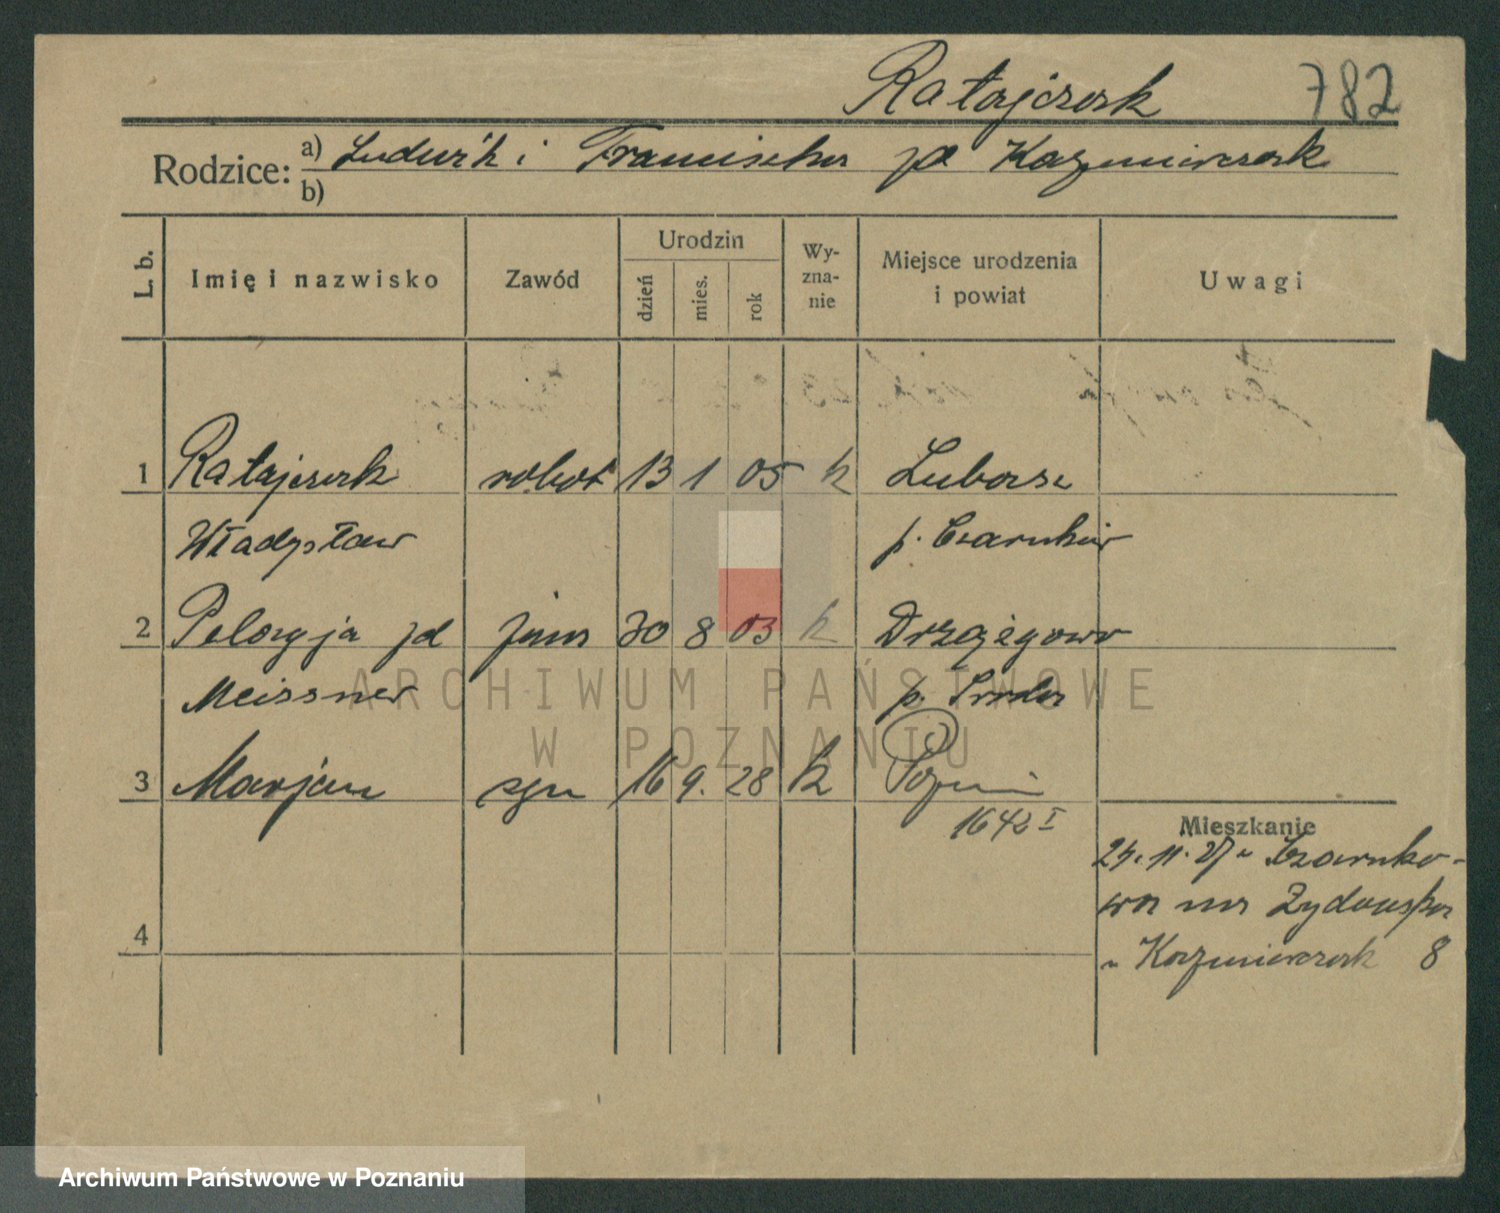 Ratajczak 782
Rodzice: a) Ludwik i Franciszka zd Kaźmierczak
b)
L. b. Imię i nazwisko Zawód Urodzin dzień mies. rok Wyznanie Miejsce urodzenia i powiat Uwagi
1 Ratajczak robot 13 1 05 k Lubasz
Władysław p. Czarnków
2 Pelagja zd żona 30 8 03 k Drzązgowo
Meissner p. Środa
ARCHIWUM PAŃSTWOWE
W POZNANIU
3 Marjan syn 16 9. 28 k Pozn
1642 I
Mieszkanie
11. 27 z Czarnko-
wa na Żydowska
u Kaźmierczak 8
4
Archiwum Państwowe w Poznaniu